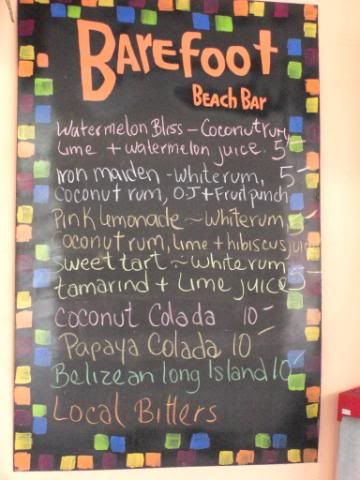 Barefoot
Beach Bar
Watermelon Bliss - Coconut rum,
Lime + watermelon juice. 5-
Iron maiden - White rum, 5-
Coconut rum, OJ + Fruit punch
Pink Lemonade ~ White rum 5-
Coconut rum, Lime + hibiscus juice
Sweet tart ~ White rum
tamarind + Lime juice 5-
Coconut Colada 10-
Papaya Colada 10-
Belizean long Island 10-
Local Bitters